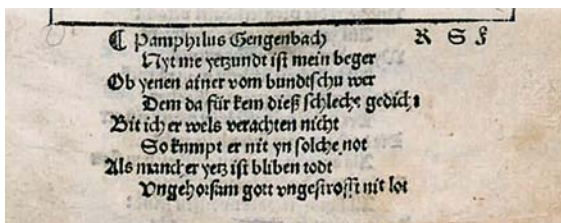 ¶ Pamphilus Gengenbach R S F
Nyt me yetzundt ist mein beger
Ob yenen ainer vom bundtschu wer
Dem da für kem dieß schlecht gedicht
Bit ich er wels verachten nicht
So kumpt er nit yn solche not
Als mancher yetz ist bliben todt
Vngehorsam gott vngestrofft nit lot